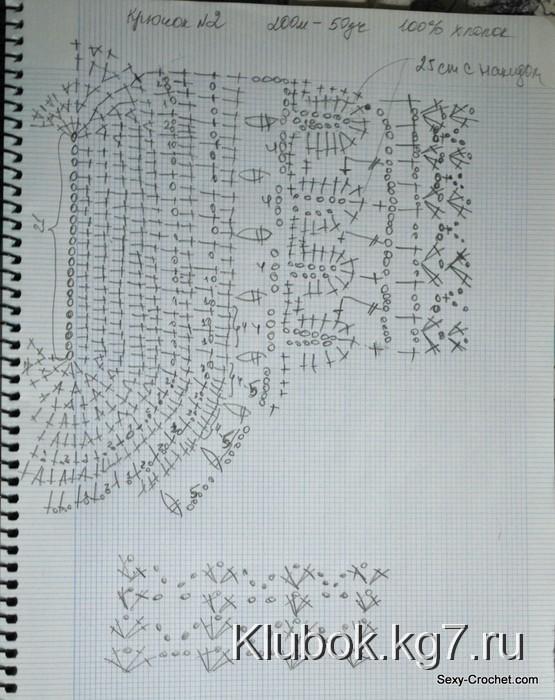 Крючок №2 200м - 50гр 100% хлопок
25 ст с накидом
21
4
4
4
4
5
5
5
Klubok.kg7.ru
Sexy-Crochet.com